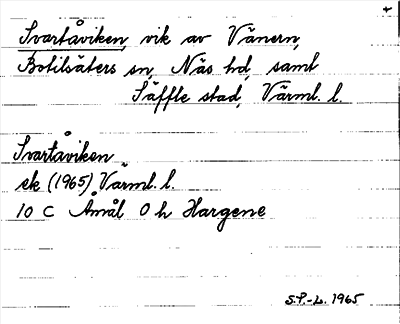 Svartåviken, vik av Vänern,
Botilsäters sn, Näs hd, samt
Säffle stad, Värml. l.
Svartåviken
ek (1965) Värml. l.
10 C Åmål 0 h Hargene
S.P.-L. 1965